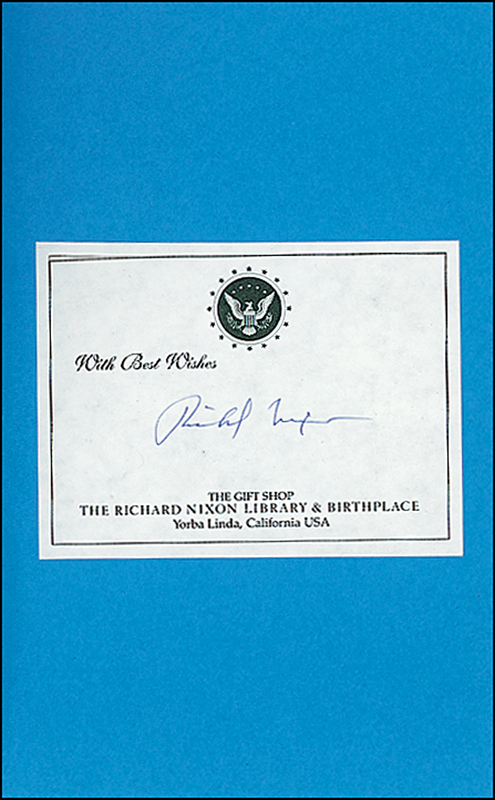 With Best Wishes
Richard Nixon
THE GIFT SHOP
THE RICHARD NIXON LIBRARY & BIRTHPLACE
Yorba Linda, California USA